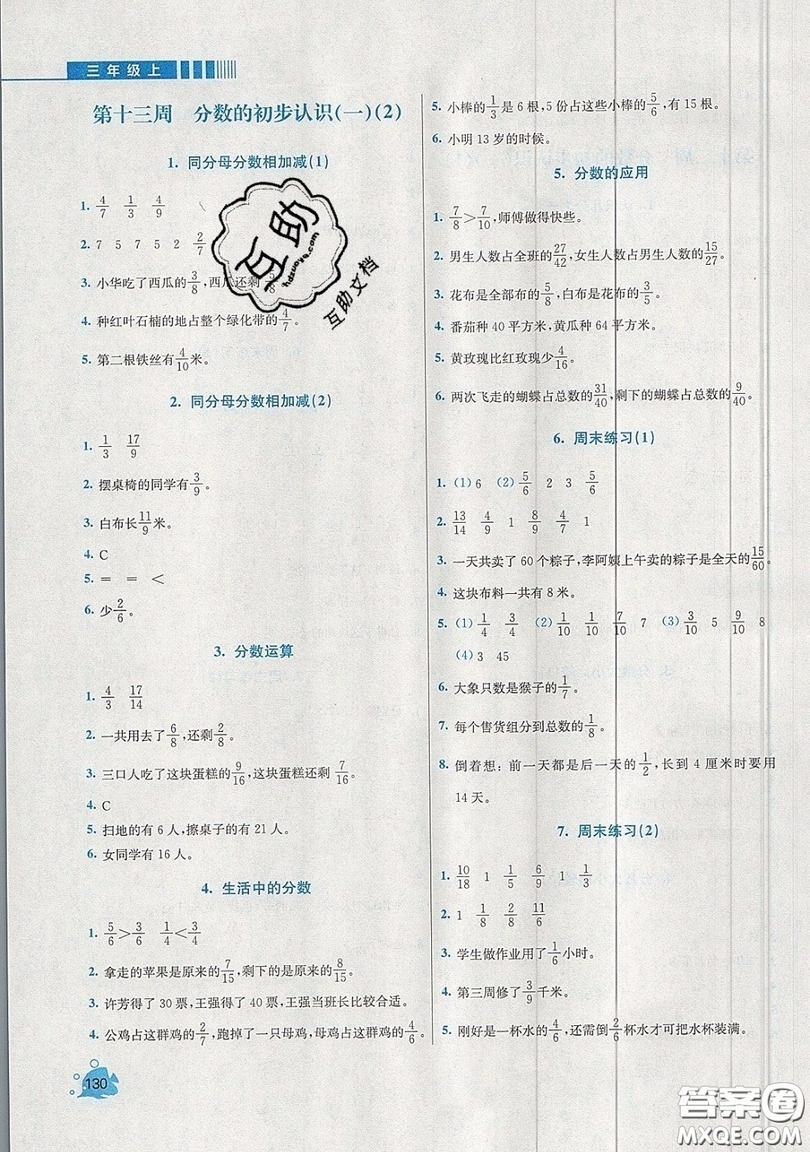 三年级上
第十三周 分数的初步认识(一)(2)
1. 同分母分数相加减(1)
1. 4/7 1/3 4/9
2. 7 5 7 5 2 2/7
3. 小华吃了西瓜的3/8,西瓜还剩
4. 种红叶石楠的地占整个绿化带的4/7。
5. 第二根铁丝有4/10米。
2. 同分母分数相加减(2)
1. 1/3 17/9
2. 摆桌椅的同学有3/9。
3. 白布长11/9米。
4. C
5. = = <
6. 少2/6。
3. 分数运算
1. 4/3 17/14
2. 一共用去了6/8,还剩2/8。
3. 三口人吃了这块蛋糕的9/16,这块蛋糕还剩7/16。
4. C
5. 扫地的有6人,擦桌子的有21人。
6. 女同学有16人。
4. 生活中的分数
1. 5/6>3/6 1/4<3/4
2. 拿走的苹果是原来的7/15,剩下的是原来的8/15。
3. 许芳得了30票,王强得了40票,王强当班长比较合适。
4. 公鸡占这群鸡的2/7,跑掉了一只母鸡,母鸡占这群鸡的4/6。
5. 小棒的1/3是6根,5份占这些小棒的5/6,有15根。
6. 小明13岁的时候。
5. 分数的应用
1. 7/8>7/10,师傅做得快些。
2. 男生人数占全班的27/42,女生人数占男生人数的15/27。
3. 花布是全部布的5/8,白布是花布的3/5。
4. 番茄种40平方米,黄瓜种64平方米。
5. 黄玫瑰比红玫瑰少4/16。
6. 两次飞走的蝴蝶占总数的31/40,剩下的蝴蝶占总数的9/40。
6. 周末练习(1)
1. (1) 6 (2) 5/6 2 3 5/6
2. 13/14 4/9 1 8/9 4/7 1
3. 一天共卖了60个粽子,李阿姨上午卖的粽子是全天的15/60。
4. 这块布料一共有8米。
5. (1) 1/4 3/4 (2) 1/10 1/10 7/10 7 (3) 3/10 5 9/10 8
(4) 3 45
6. 大象只数是猴子的1/7。
7. 每个售货组分到总数的1/8。
8. 倒着想:前一天都是后一天的1/2,长到4厘米时要用
14天。
7. 周末练习(2)
1. 10/18 1 1/5 6/9 1 1/3
2. 1 1/8 2/8 11/6
3. 学生做作业用了1/6小时。
4. 第三周修了3/9千米。
5. 刚好是一杯水的4/6,还需倒2/6杯水才可把水杯装满。
130
互助
hdzuoye.com
互助文档
答案圈
MXQE.COM